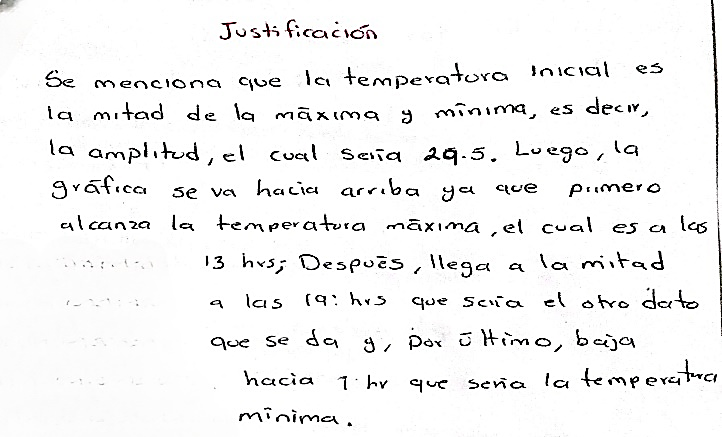 Justificación
Se menciona que la temperatura inicial es
la mitad de la máxima y mínima, es decir,
la amplitud, el cual sería 29.5. Luego, la
gráfica se va hacia arriba ya que primero
alcanza la temperatura máxima, el cual es a las
13 hrs; Después, llega a la mitad
a las 19: hrs que sería el otro dato
que se da y, por último, baja
hacia 1 hr que sería la temperatura
mínima.